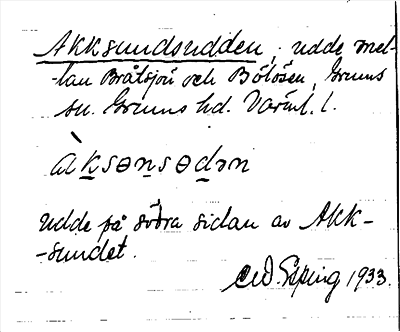 Akksundsudden, udde mel-
-lan Bråtsjön och Bölösen, Grums
sn. Grums hd. Värml. l.
àk̲sɵn̲sɵd̲ən
Udde på södra sidan av Akk-
-sundet.
Esping 1933.